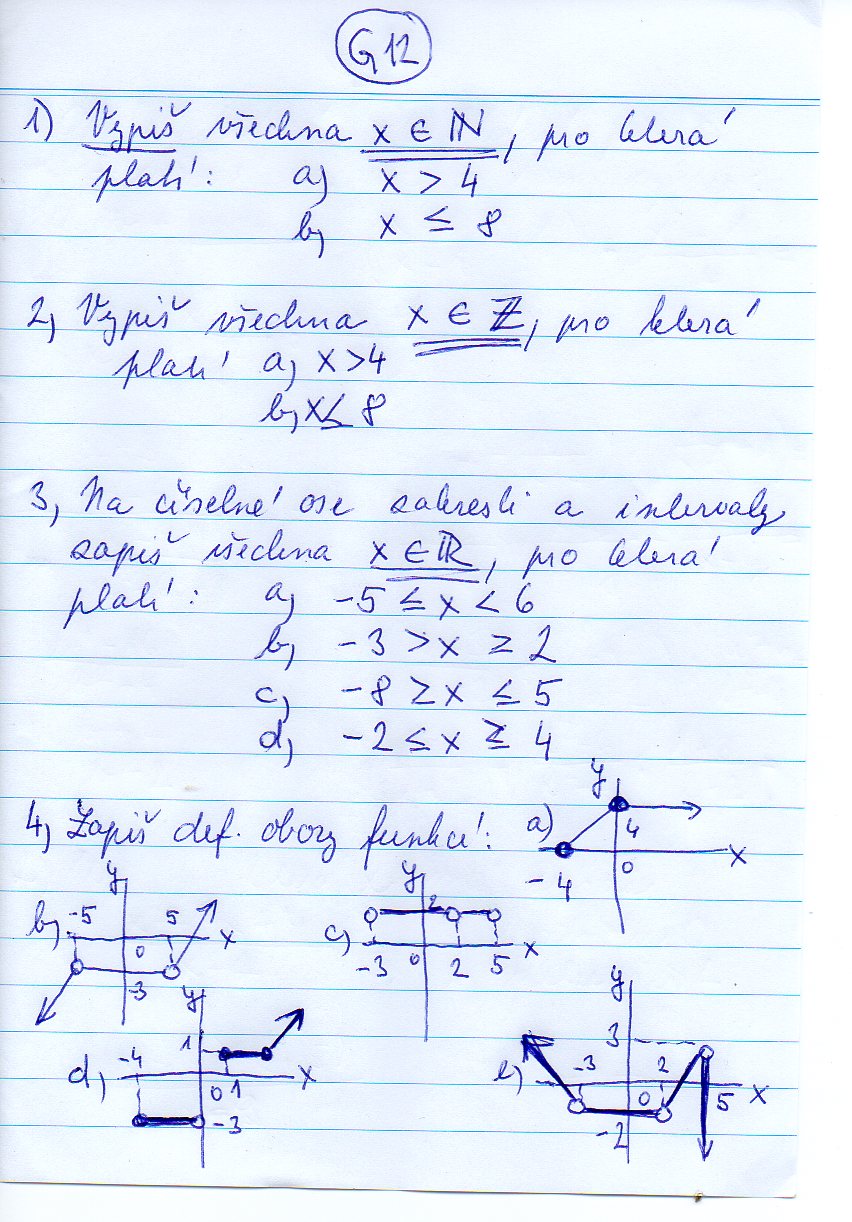 G12
1) Vypiš všechna x ∈ ℕ, pro která
platí: a) x > 4
b) x ≤ 8
2, Vypiš všechna x ∈ ℤ, pro která
platí a, x>4
b, x≤ 8
3, Na číselné ose zakresli a intervaly
zapiš všechna x ∈ ℝ, pro která
platí: a, -5 ≤ x < 6
b, -3 > x ≥ 2
c, -8 ≥ x ≤ 5
d, -2 ≤ x ≥ 4
4, Zapiš def. obory funkcí: a) y 4 x 0 -4
b, y -5 5 x 0 -3
c, y 2 x -3 0 2 5
d, y 1 -4 0 1 x -3
e, y 3 -3 2 0 5 x -2